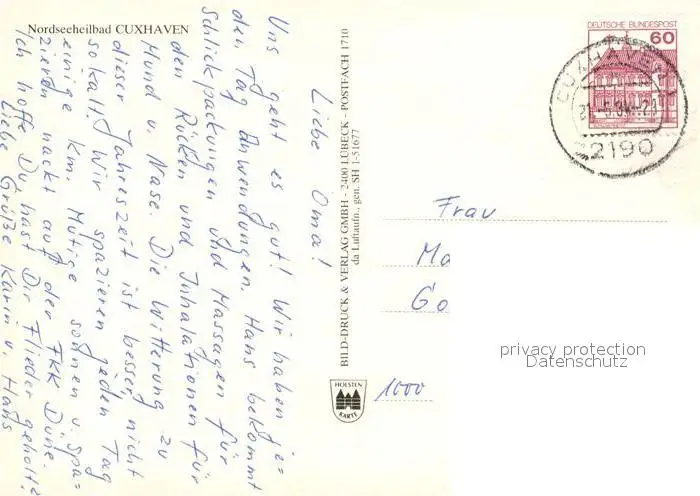 Nordseeheilbad CUXHAVEN
Liebe Oma!
Uns geht es gut! Wir haben je=
den Tag Anwendungen. Hans bekommt
Schlickpackungen und Massagen für
den Rücken und Inhalationen für
Mund u. Nase. Die Witterung zu
dieser Jahreszeit ist besser nicht
so kalt. Wir spazieren jeden Tag
einige km. Mutige sonnen u. spa=
zieren nackt auf der FKK Düne.
Ich hoffe Du hast Dir Flieder geholt?
Liebe Grüße Karin u. Hans
BILD-DRUCK & VERLAG GMBH - 2400 LÜBECK - POSTFACH 1710
da Luftaufn., gen. SH 1-51677
HOLSTEN
KARTE
DEUTSCHE BUNDESPOST
60
CUXHAVEN
2190
Frau
Ma
Go
1000
privacy protection
Datenschutz